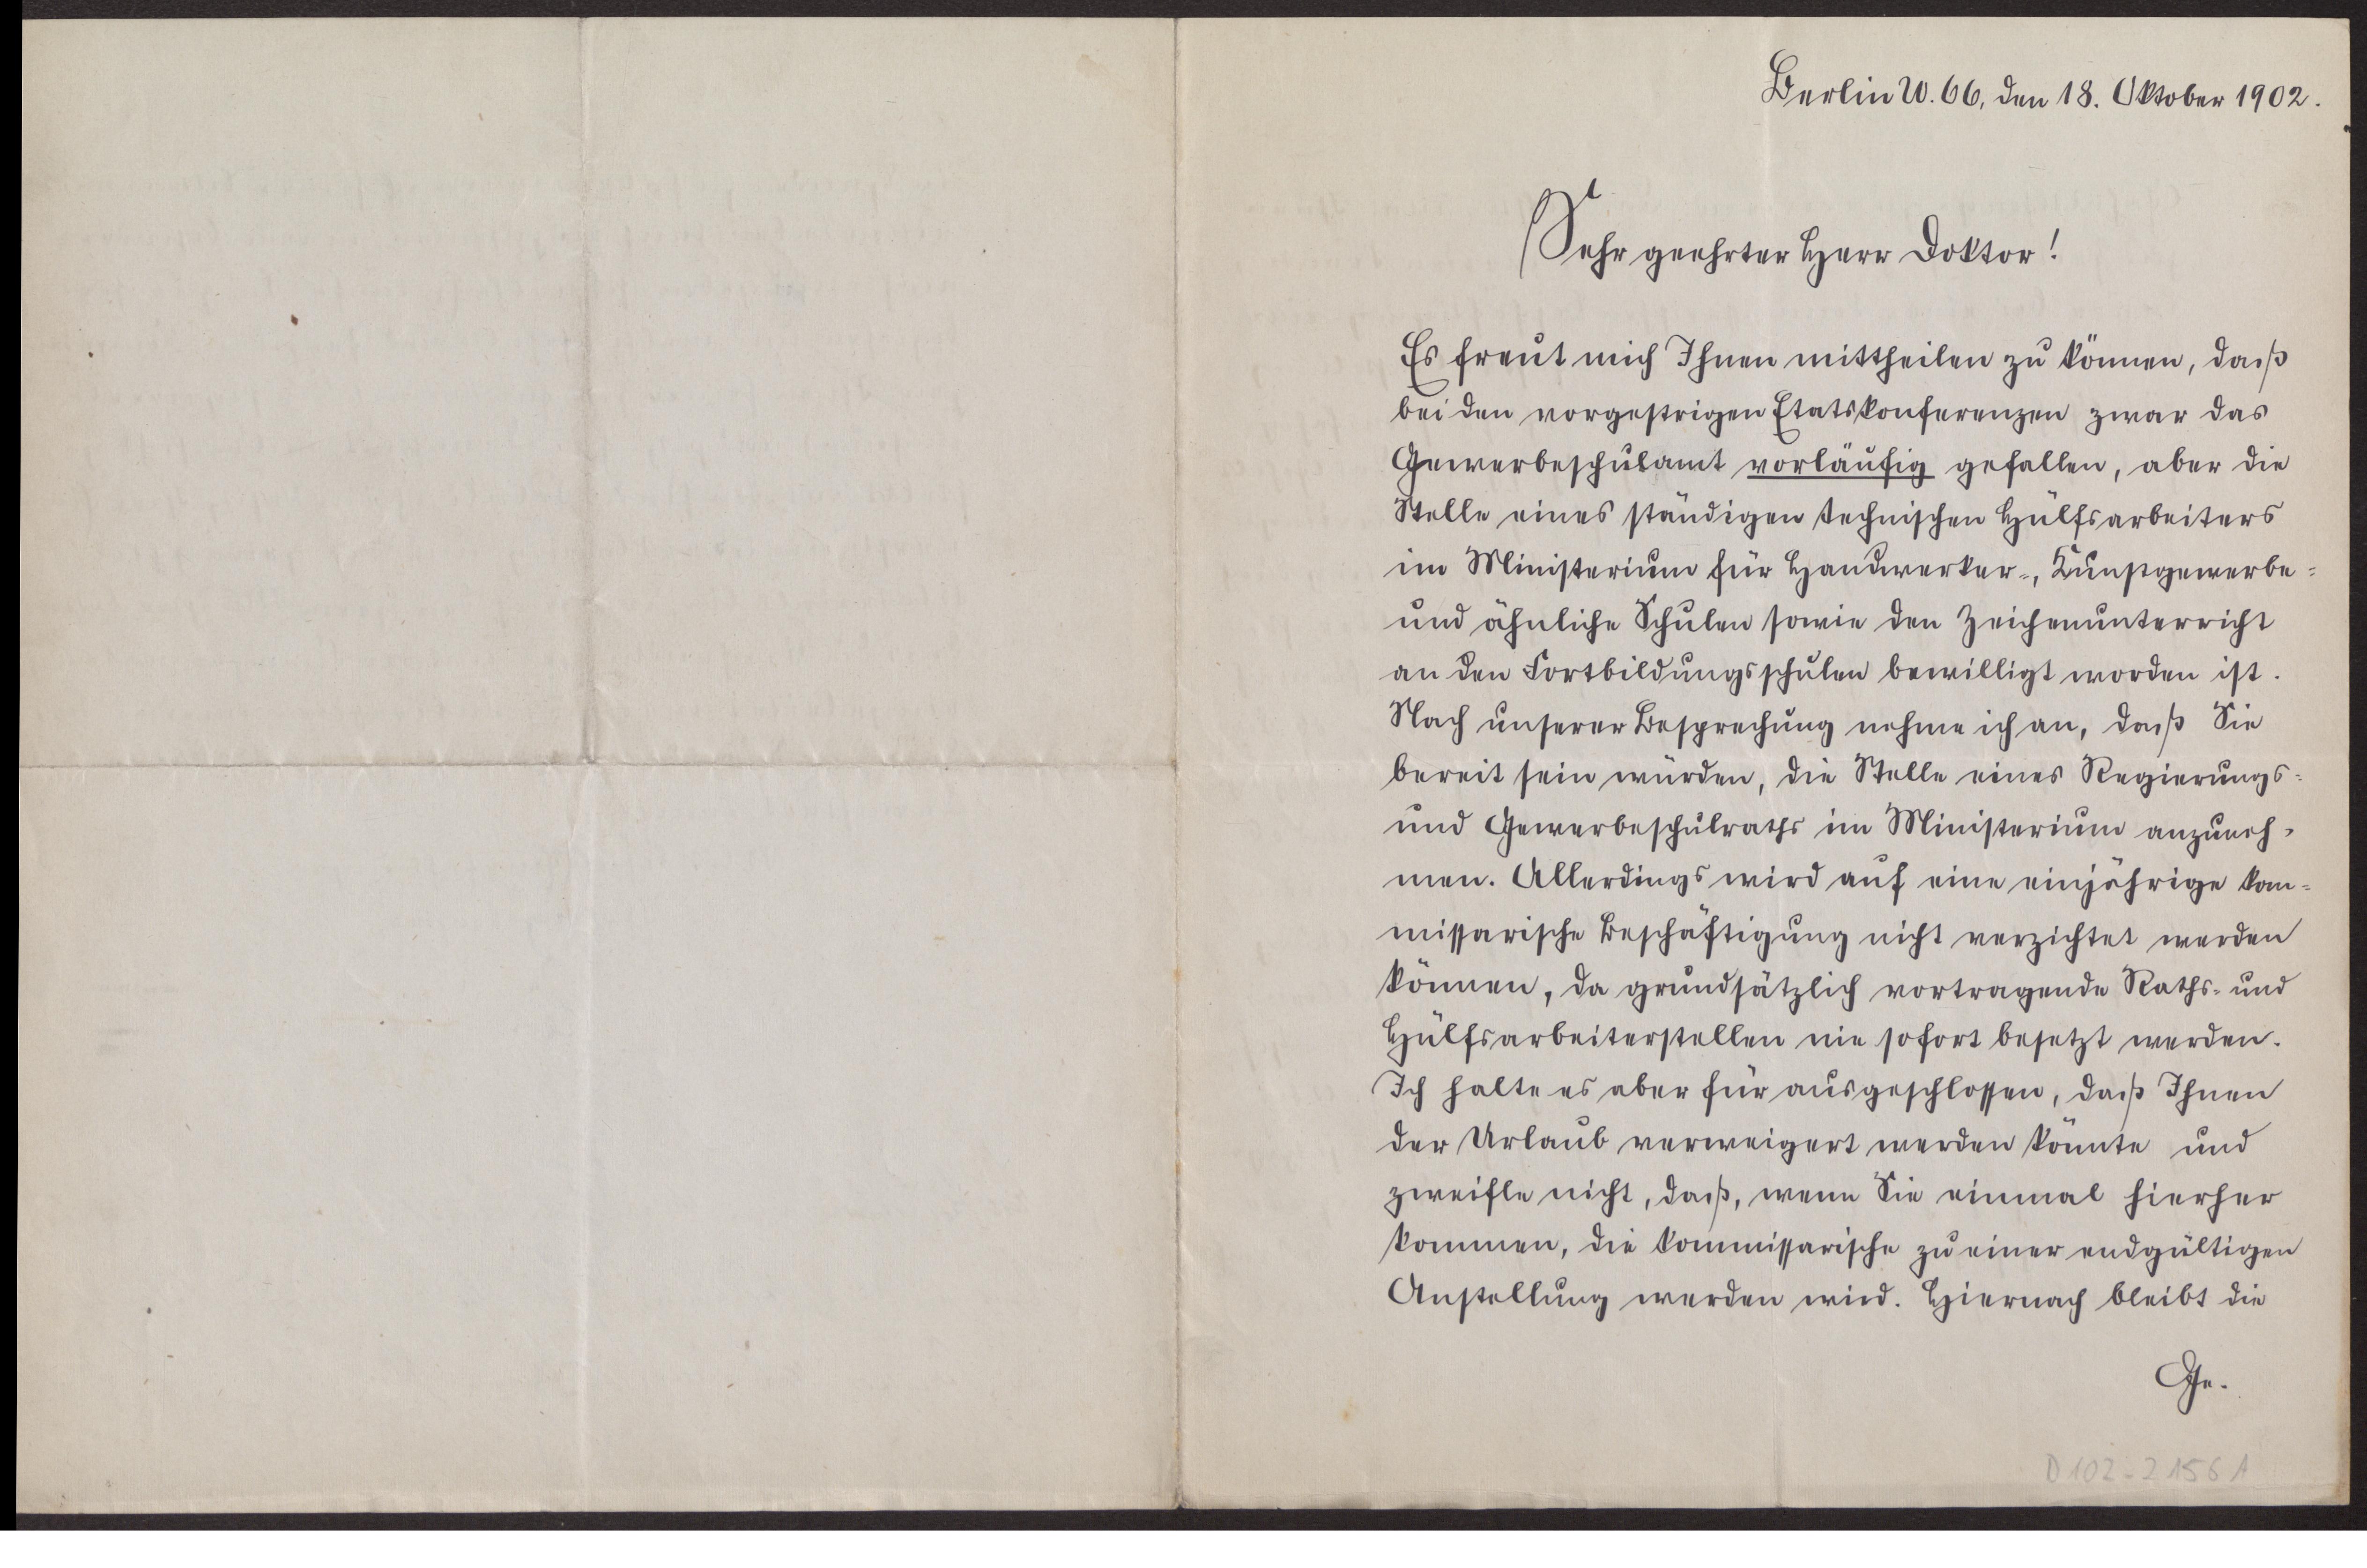 Berlin W. 66, den 18. Oktober 1902.
Sehr geehrter Herr Doktor!
Es freut mich Ihnen mittheilen zu können, daß
bei den vorgestrigen Etatskonferenzen zwar das
Gewerbeschulamt vorläufig gefallen, aber die
Stelle eines ständigen technischen Hülfsarbeiters
im Ministerium für Handwerker-, Kunstgewerbe-
und ähnliche Schulen sowie den Zeichenunterricht
an den Fortbildungsschulen bewilligt worden ist.
Nach unserer Besprechung nehme ich an, daß Sie
bereit sein würden, die Stelle eines Regierungs-
und Gewerbeschulraths im Ministerium anzuneh-
men. Allerdings wird auf eine einjährige kom-
missarische Beschäftigung nicht verzichtet werden
können, da grundsätzlich vortragende Raths- und
Hülfsarbeiterstellen nie sofort besetzt werden.
Ich halte es aber für ausgeschlossen, daß Ihnen
der Urlaub verweigert werden könnte und
zweifle nicht, daß, wenn Sie einmal hierher
kommen, die kommissarische zu einer endgültigen
Anstellung werden wird. Hiernach bleibt die
Ge-
D 102-2156 A